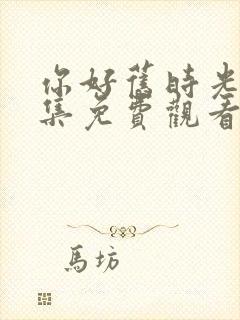 你好舊時光
集免費觀看
馬坊